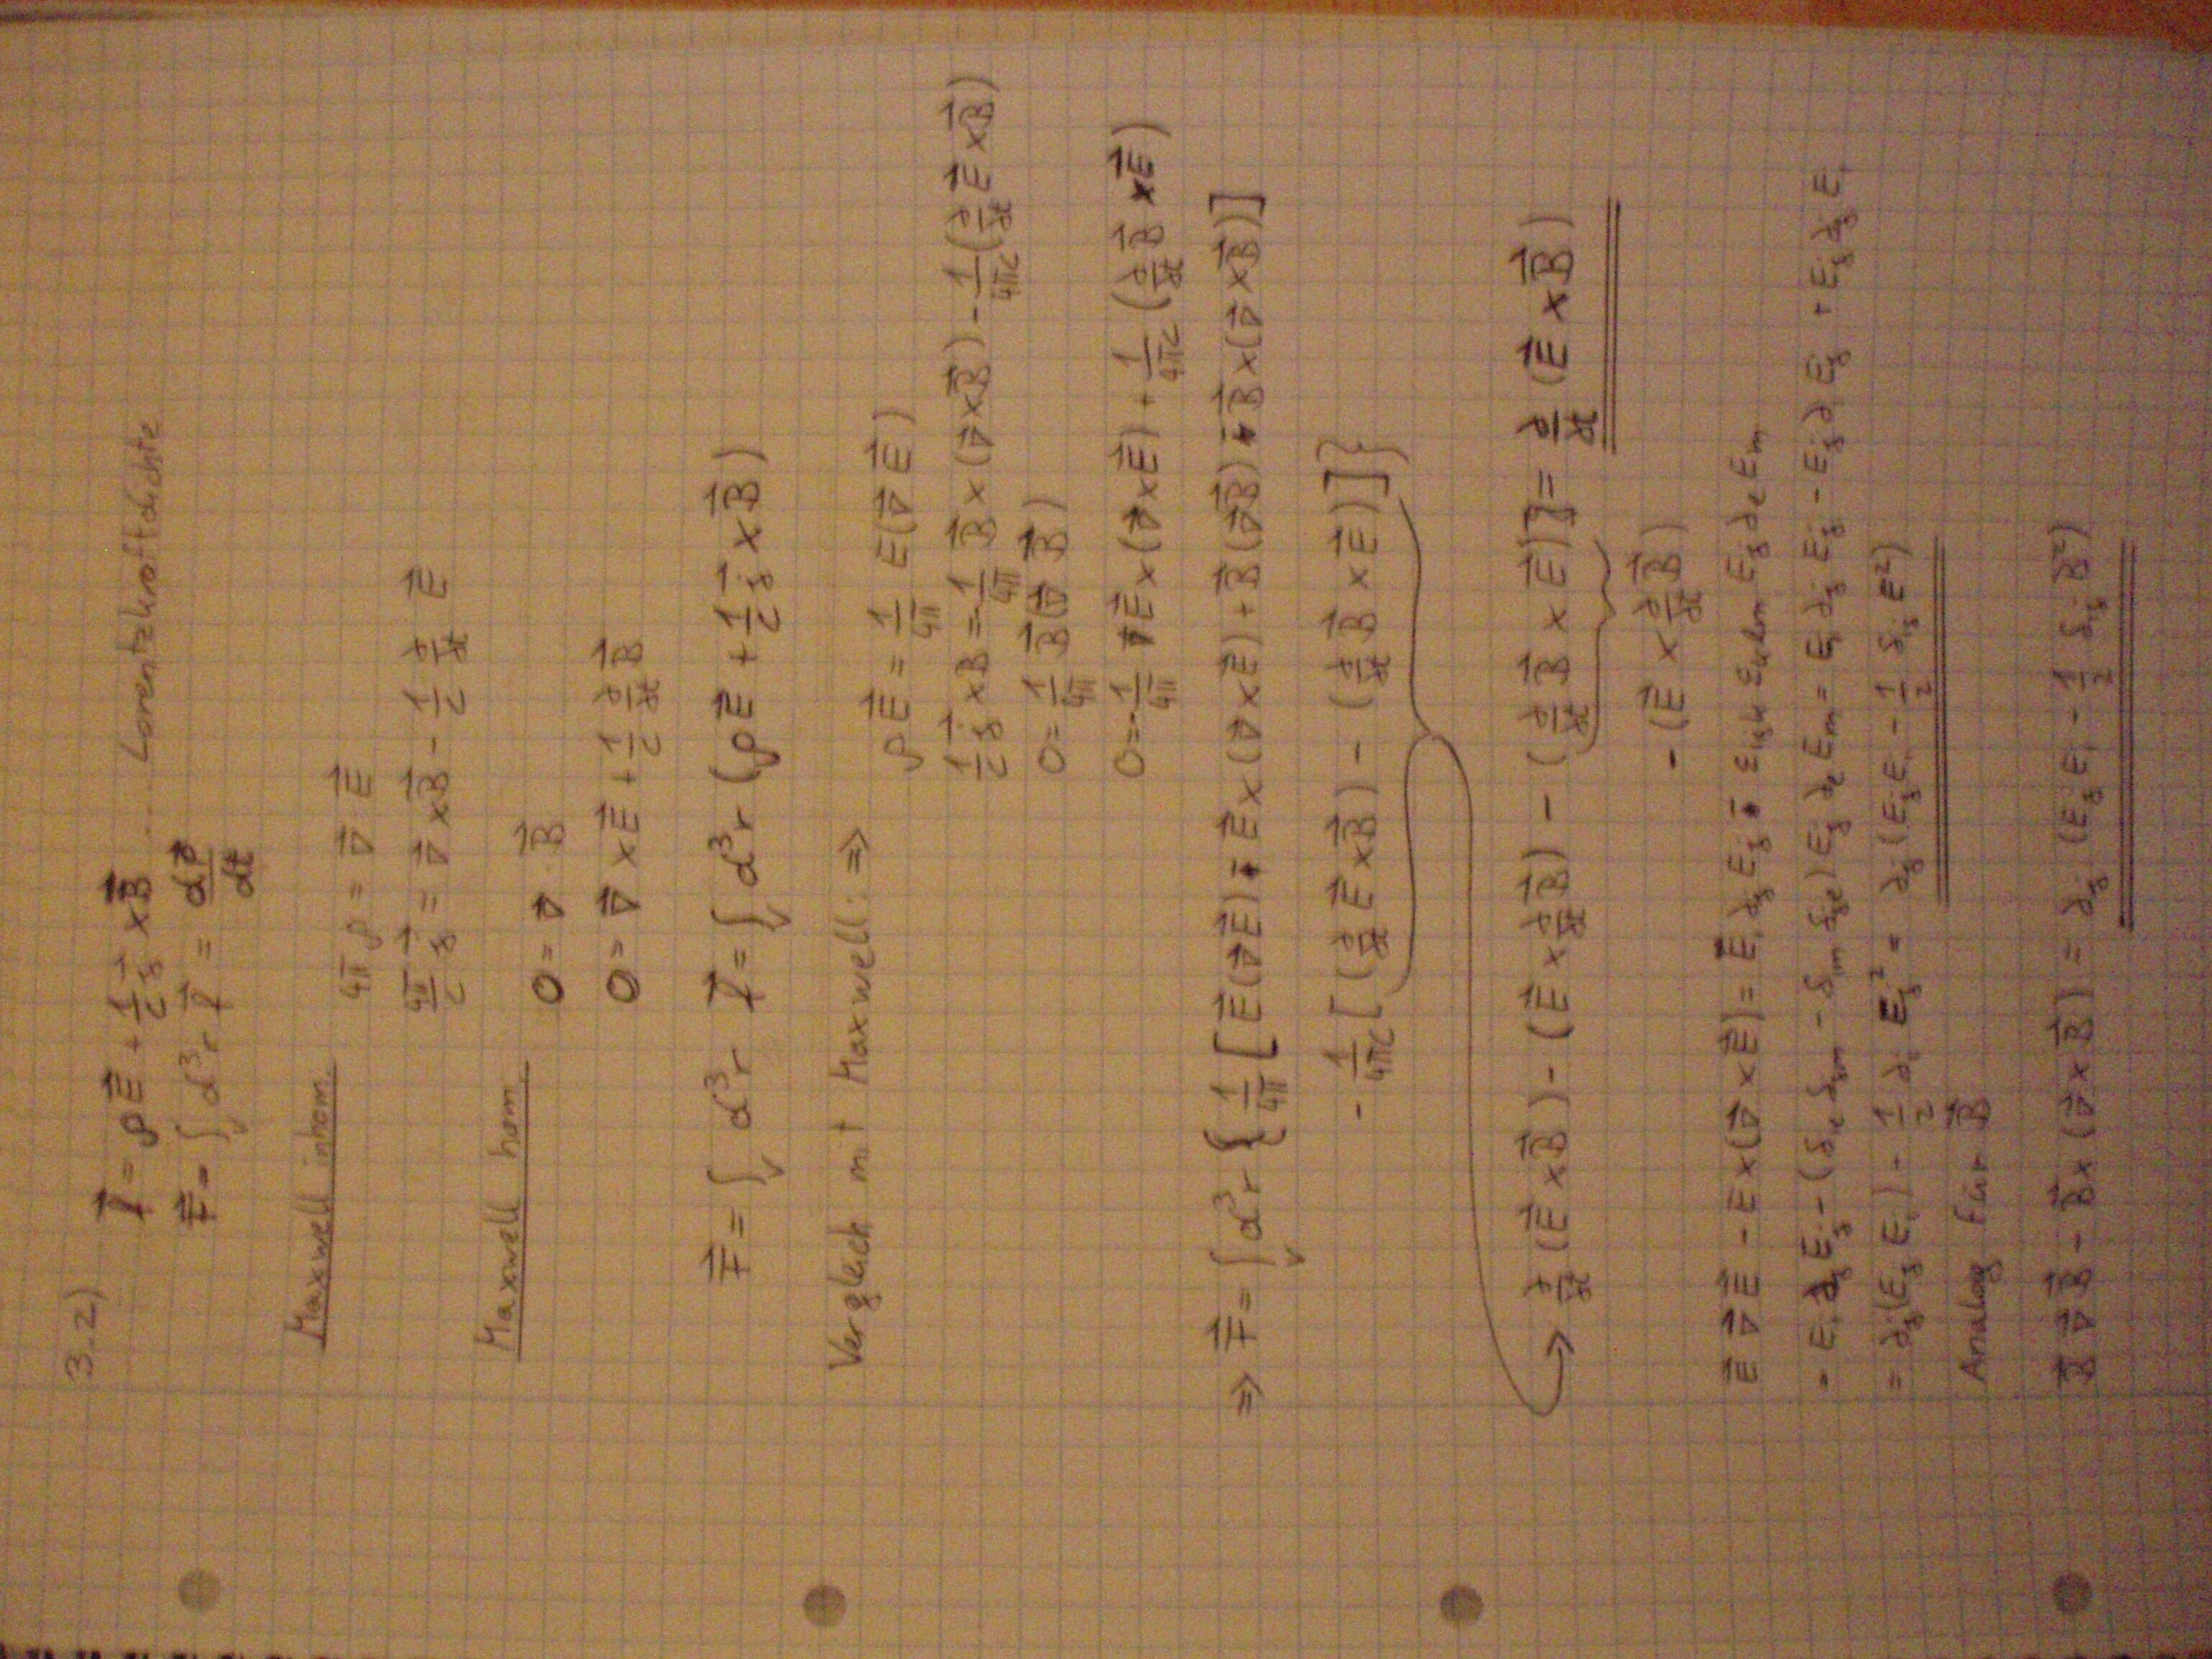 3.2)
f⃗ = ρE⃗ + 1/c j⃗ × B⃗ ..... Lorentzkraftdichte
F⃗ = ∫_V d³r f⃗ = dp⃗/dt
Maxwell inhom.
4π ρ = ∇⃗ E⃗
4π/c j⃗ = ∇⃗ × B⃗ - 1/c ∂/∂t E⃗
Maxwell hom.
0 = ∇⃗ B⃗
0 = ∇⃗ × E⃗ + 1/c ∂/∂t B⃗
F⃗ = ∫_V d³r f⃗ = ∫_V d³r (ρE⃗ + 1/c j⃗ × B⃗)
Vergleich mit Maxwell: ⇒
ρE⃗ = 1/4π E(∇⃗ E⃗)
1/c j⃗ × B = -1/4π B⃗ × (∇⃗ × B⃗) - 1/4πc (∂/∂t E⃗ × B⃗)
0 = 1/4π B⃗(∇⃗ B⃗)
0 = -1/4π E⃗ × (∇⃗ × E⃗) + 1/4πc (∂/∂t B⃗ × E⃗)
⇒ F⃗ = ∫_V d³r { 1/4π [E⃗(∇⃗E⃗) - E⃗ × (∇⃗ × E⃗) + B⃗(∇⃗B⃗) - B⃗ × (∇⃗ × B⃗)]
- 1/4πc [(∂/∂t E⃗ × B⃗) - (∂/∂t B⃗ × E⃗)]}
→ ∂/∂t (E⃗ × B⃗) - (E⃗ × ∂/∂t B⃗) - (∂/∂t B⃗ × E⃗)] = ∂/∂t (E⃗ × B⃗)
- (E⃗ × ∂/∂t B⃗)
E⃗ ∇⃗ E⃗ - E × (∇⃗ × E⃗) = E_i ∂_j E_j - ε_ijk ε_klm E_j ∂_l E_m
= E_i ∂_j E_j - (δ_il δ_jm - δ_im δ_jl) E_j ∂_l E_m = E_i ∂_j E_j - E_j ∂_i E_j + E_j ∂_j E_i
= ∂_j (E_j E_i) - 1/2 ∂_i E_j² = ∂_j (E_j E_i - 1/2 δ_ij E²)
Analog für B⃗
B⃗ ∇⃗ B⃗ - B⃗ × (∇⃗ × B⃗) = ∂_j (E_j E_i - 1/2 δ_ij B²)